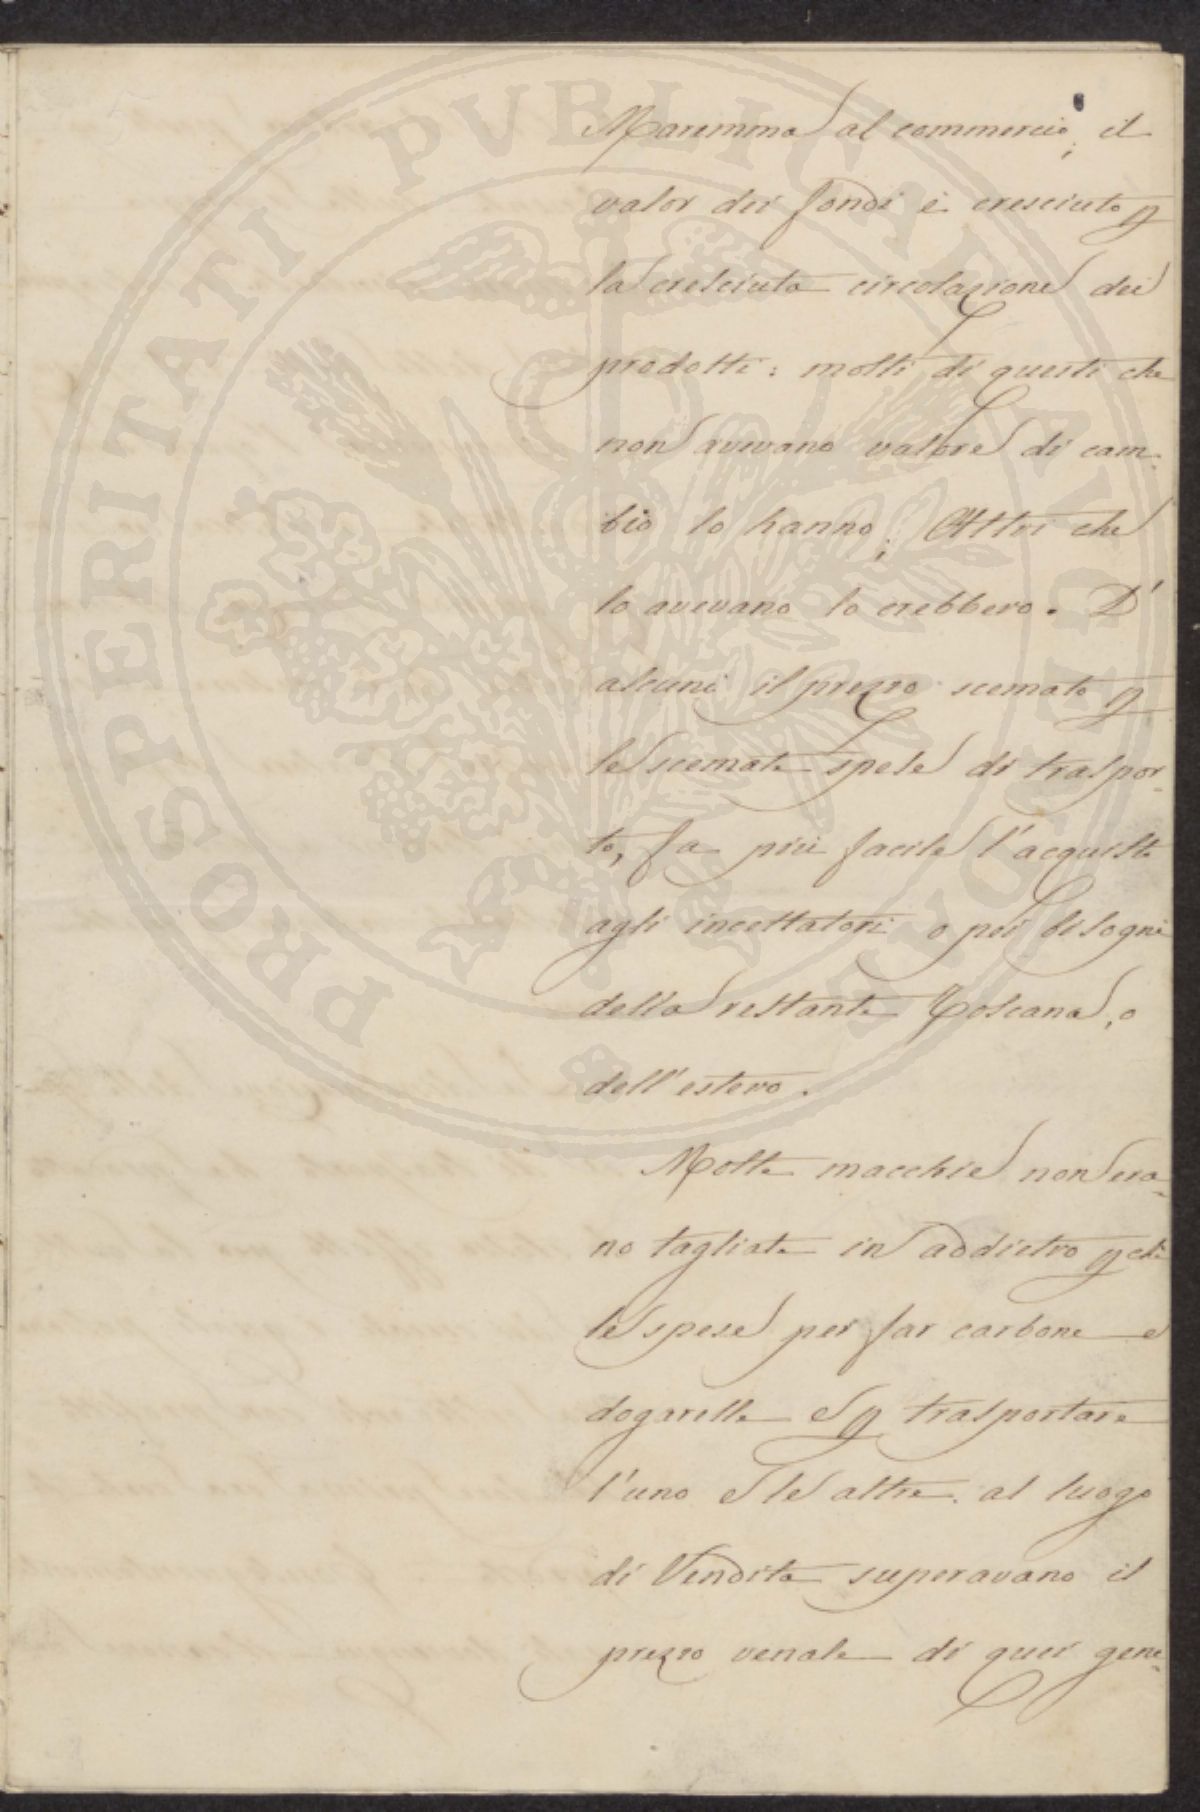 PROSPERITATI PVBLICAE AVGENDAE
Maremma al commercio; il
valor dei fondi è cresciuto p
la cresciuta circolazione dei
prodotti: molti di questi che
non avevano valore di cam-
bio lo hanno; Altri che
lo avevano lo crebbero. D'
alcuni il prezzo scemato p
le scemate spese di traspor-
to, fa più facile l'acquisto
agli incettatori o pei bisogni
della restante Toscana, o
dell'estero.
Molte macchie non era-
no tagliate in addietro p chè
le spese per far carbone e
dogarelle e p trasportare
l'uno e le altre al luogo
di Vendita superavano il
prezzo venale di quei gene-